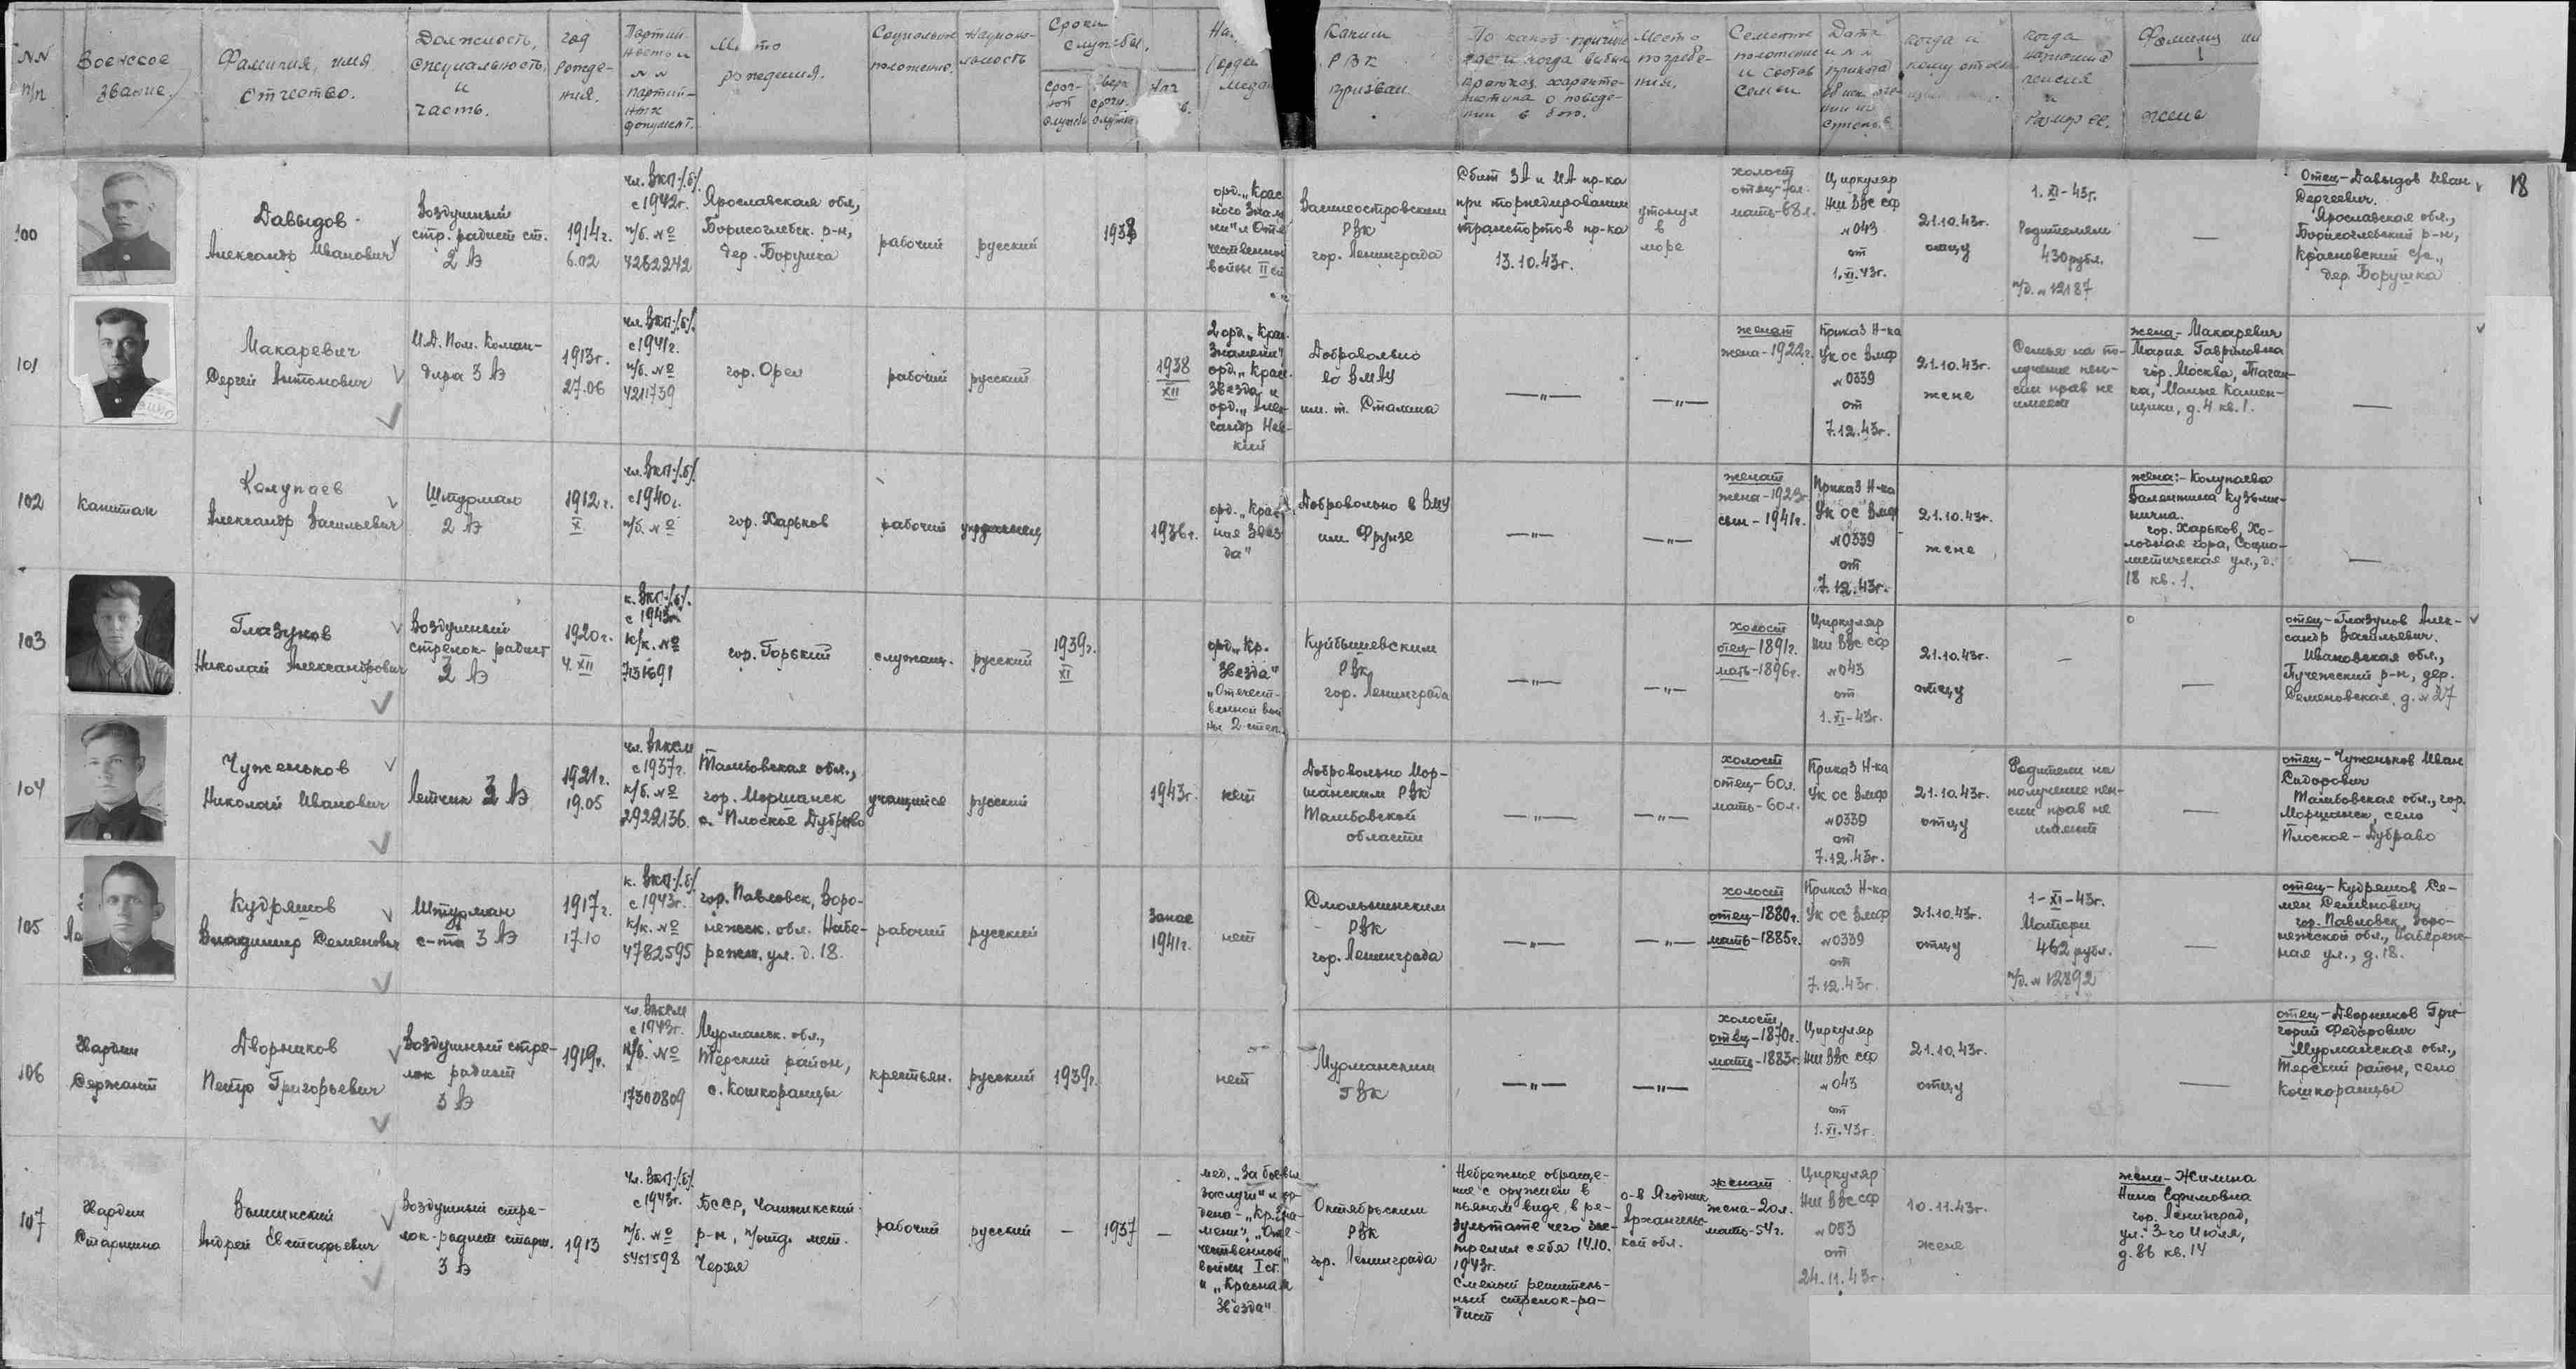 NN
п/п
Воен­ское
звание.
Фамилия, имя
отчество.
Должность,
специальность,
и
часть.
год
рожде-
ния.
Партий-
ность и
NN
партий-
ных
документ.
Место
рождения.
Социальное
положение.
Национа-
льность
Сроки
службы.
сроч-
ной
службы
сверх
сроч.
службы
Каким
РВК
призван
По какой причине
где и когда выбыл
краткая характе-
ристика о поведе-
нии в бою.
Место
погребе-
ния.
Семейное
положение
и состав
семьи
Дата
и NN
приказа
когда и
кому
когда
назначена
пенсия
и
размер ее.
Фамилия
жены
18
100
Давыдов
Александр Иванович
Воздушный
стр. радист ст.
2 АЭ
1914 г.
6.02
чл. ВКП/б/
с 1942 г.
п/б. №
4262242
Ярославская обл.,
Борисоглебск. р-н,
дер. Борушка
рабочий
русский
1938
орд. „Крас
ного Знам
ени" и Оте
чественной
войны II ст
Василеостровским
РВК
гор. Ленинграда
Сбит ЗА и ИА пр-ка
при торпедировании
транспортов пр-ка
13.10.43г.
утонул
в
море
холост
мать-68 л.
Циркуляр
НШ ВВС СФ
№ 043
от
1.XI.43г.
21.10.43г.
отцу
1.XI-43г.
Родителям
430 рубл.
п/д. № 12187
—
Отец-Давыдов Иван
Сергеевич.
Ярославская обл.,
Борисоглебский р-н,
Красновский с/с.,
дер. Борушка
101
Макаревич
Сергей Антонович
И.Д. Пом. Коман-
дира 3 АЭ
1913г.
27.06
чл. ВКП/б/
с 1941г.
п/б. №
4211739
гор. Орел
рабочий
русский
1938
XII
2 орд. „Крас.
Знамени"
орд. „Крас.
Звезда" и
орд. „Алек-
сандр Нев-
кий
Добровольно
во ВМАУ
им. т. Сталина
—"—
—"—
женат
жена-1922г.
Приказ Н-ка
УК ОС ВМФ
№ 0339
от
7.12.43г.
21.10.43г.
жене
Семья на по-
лучение пен-
сии прав не
имеет
жена-Макаревич
Мария Гавриловна
гор. Москва, Таган-
ка, Малые Камен-
щики, д.4 кв.1.
—
102
Капитан
Колупаев
Александр Васильевич
Штурман
2 АЭ
1912 г.
X
чл. ВКП/б/
с 1940г.
п/б. №
гор. Харьков
рабочий
украинец
1936г.
орд. „Крас
ная Звез
да"
Добровольно в ВМУ
им. Фрунзе
—"—
—"—
женат
жена-1923г
сын-1941г.
Приказ Н-ка
УК ОС ВМФ
№ 0339
от
7.12.43г.
21.10.43г.
жене
жена:-Колупаева
Валентина Кузьми-
нична.
гор. Харьков, Хо-
лодная гора, Социа-
листическая ул., д.
18 кв. 1.
—
103
Глазунов
Николай Александрович
Воздушный
стрелок-радист
2 АЭ
1920 г.
4.XII
к. ВКП/б/
с 1943г.
к/к. №
гор. Горький
служащ.
русский
1939г.
XI
орд. „Кр.
Звезда"
„Отечест-
венной вой
ны 2 степ.
Куйбышевским
РВК
гор. Ленинграда
—"—
—"—
холост
отец-1891г.
мать-1896г.
Циркуляр
НШ ВВС СФ
№ 043
от
1.XI-43г.
21.10.43г.
отцу
—
—
отец-Глазунов Алек-
сандр Васильевич.
Ивановская обл.,
Пучежский р-н, дер.
Деменовская, д. № 27
104
Чуженьков
Николай Иванович
Летчик 3 АЭ
1921г.
19.05
чл. ВЛКСМ
с 1937г.
к/б. №
2929136
Тамбовская обл.,
гор. Моршанск
с. Плоское Дуброво
учащийся
русский
1943г.
нет
Добровольно Мор-
шанским РВК
Тамбовской
области
—"—
—"—
холост
отец-60 л.
мать-60 л.
Приказ Н-ка
УК ОС ВМФ
№ 0339
от
7.12.43г.
21.10.43г.
отцу
Родители на
получение пен-
сии прав не
имеют
—
отец-Чуженьков Иван
Сидорович
Тамбовская обл., гор.
Моршанск, село
Плоское-Дубраво
105
Кудряшов
Владимир Семенович
Штурман
с-та 3 АЭ
1917 г.
17.10
к. ВКП/б/
с 1943г.
к/к. №
4782595
гор. Павловск, Воро-
нежск. обл. Набе-
режн. ул. д. 18.
рабочий
русский
Запас
1941г.
нет
Смольнинским
РВК
гор. Ленинграда
—"—
—"—
холост
отец-1880г.
мать-1885г.
Приказ Н-ка
УК ОС ВМФ
№ 0339
от
7.12.43г.
21.10.43г.
отцу
1-XI-43г.
Матери
462 рубл.
п/д. № 12892
—
отец-Кудряшов Се-
мен Семенович
гор. Павловск, Воро-
нежской обл., Набереж-
ная ул., д. 18.
106
Мл.
Сержант
Дворников
Петр Григорьевич
Воздушный стре-
лок радист
3 АЭ
1919г.
чл. ВЛКСМ
с 1943г.
к/б. №
17300809
Мурманск. обл.,
Терский район,
с. Кошкоранцы
крестьян.
русский
1939г.
нет
Мурманским
ГВК
—"—
—"—
холост
отец-1870г.
мать-1883г.
Циркуляр
НШ ВВС СФ
№ 043
от
1.XI.43г.
21.10.43г.
отцу
—
отец-Дворников Гри-
горий Федорович
Мурманская обл.,
Терский район, село
Кошкоранцы
107
Старшина
Вышинский
Андрей Евстафьевич
Воздушный стре-
лок-радист старш.
3 АЭ
1913
чл. ВКП/б/
с 1943г.
п/б. №
5451598
БССР, Чашникский
р-н, мест.
Черея
рабочий
русский
—
1937
—
мед. „За боевые
заслуги" и ор-
дена-„Кр. Зна-
мени", „Оте-
чественной
войны I ст."
и „Красная
Звезда"
Октябрьским
РВК
гор. Ленинграда
Небрежное обраще-
ние с оружием в
пьяном виде, в ре-
зультате чего зас-
трелил себя 14.10.
1943г.
Смелый решитель-
ный стрелок-ра-
дист
о-в Ягодник
Архангельс-
кой обл.
женат
жена-20 л.
мать-54 г.
Циркуляр
НШ ВВС СФ
№ 053
от
24.11.43г.
10.11.43г.
жене
жена-Жилина
Нина Ефимовна
гор. Ленинград,
ул. 3-го Июля,
д. 86 кв. 14